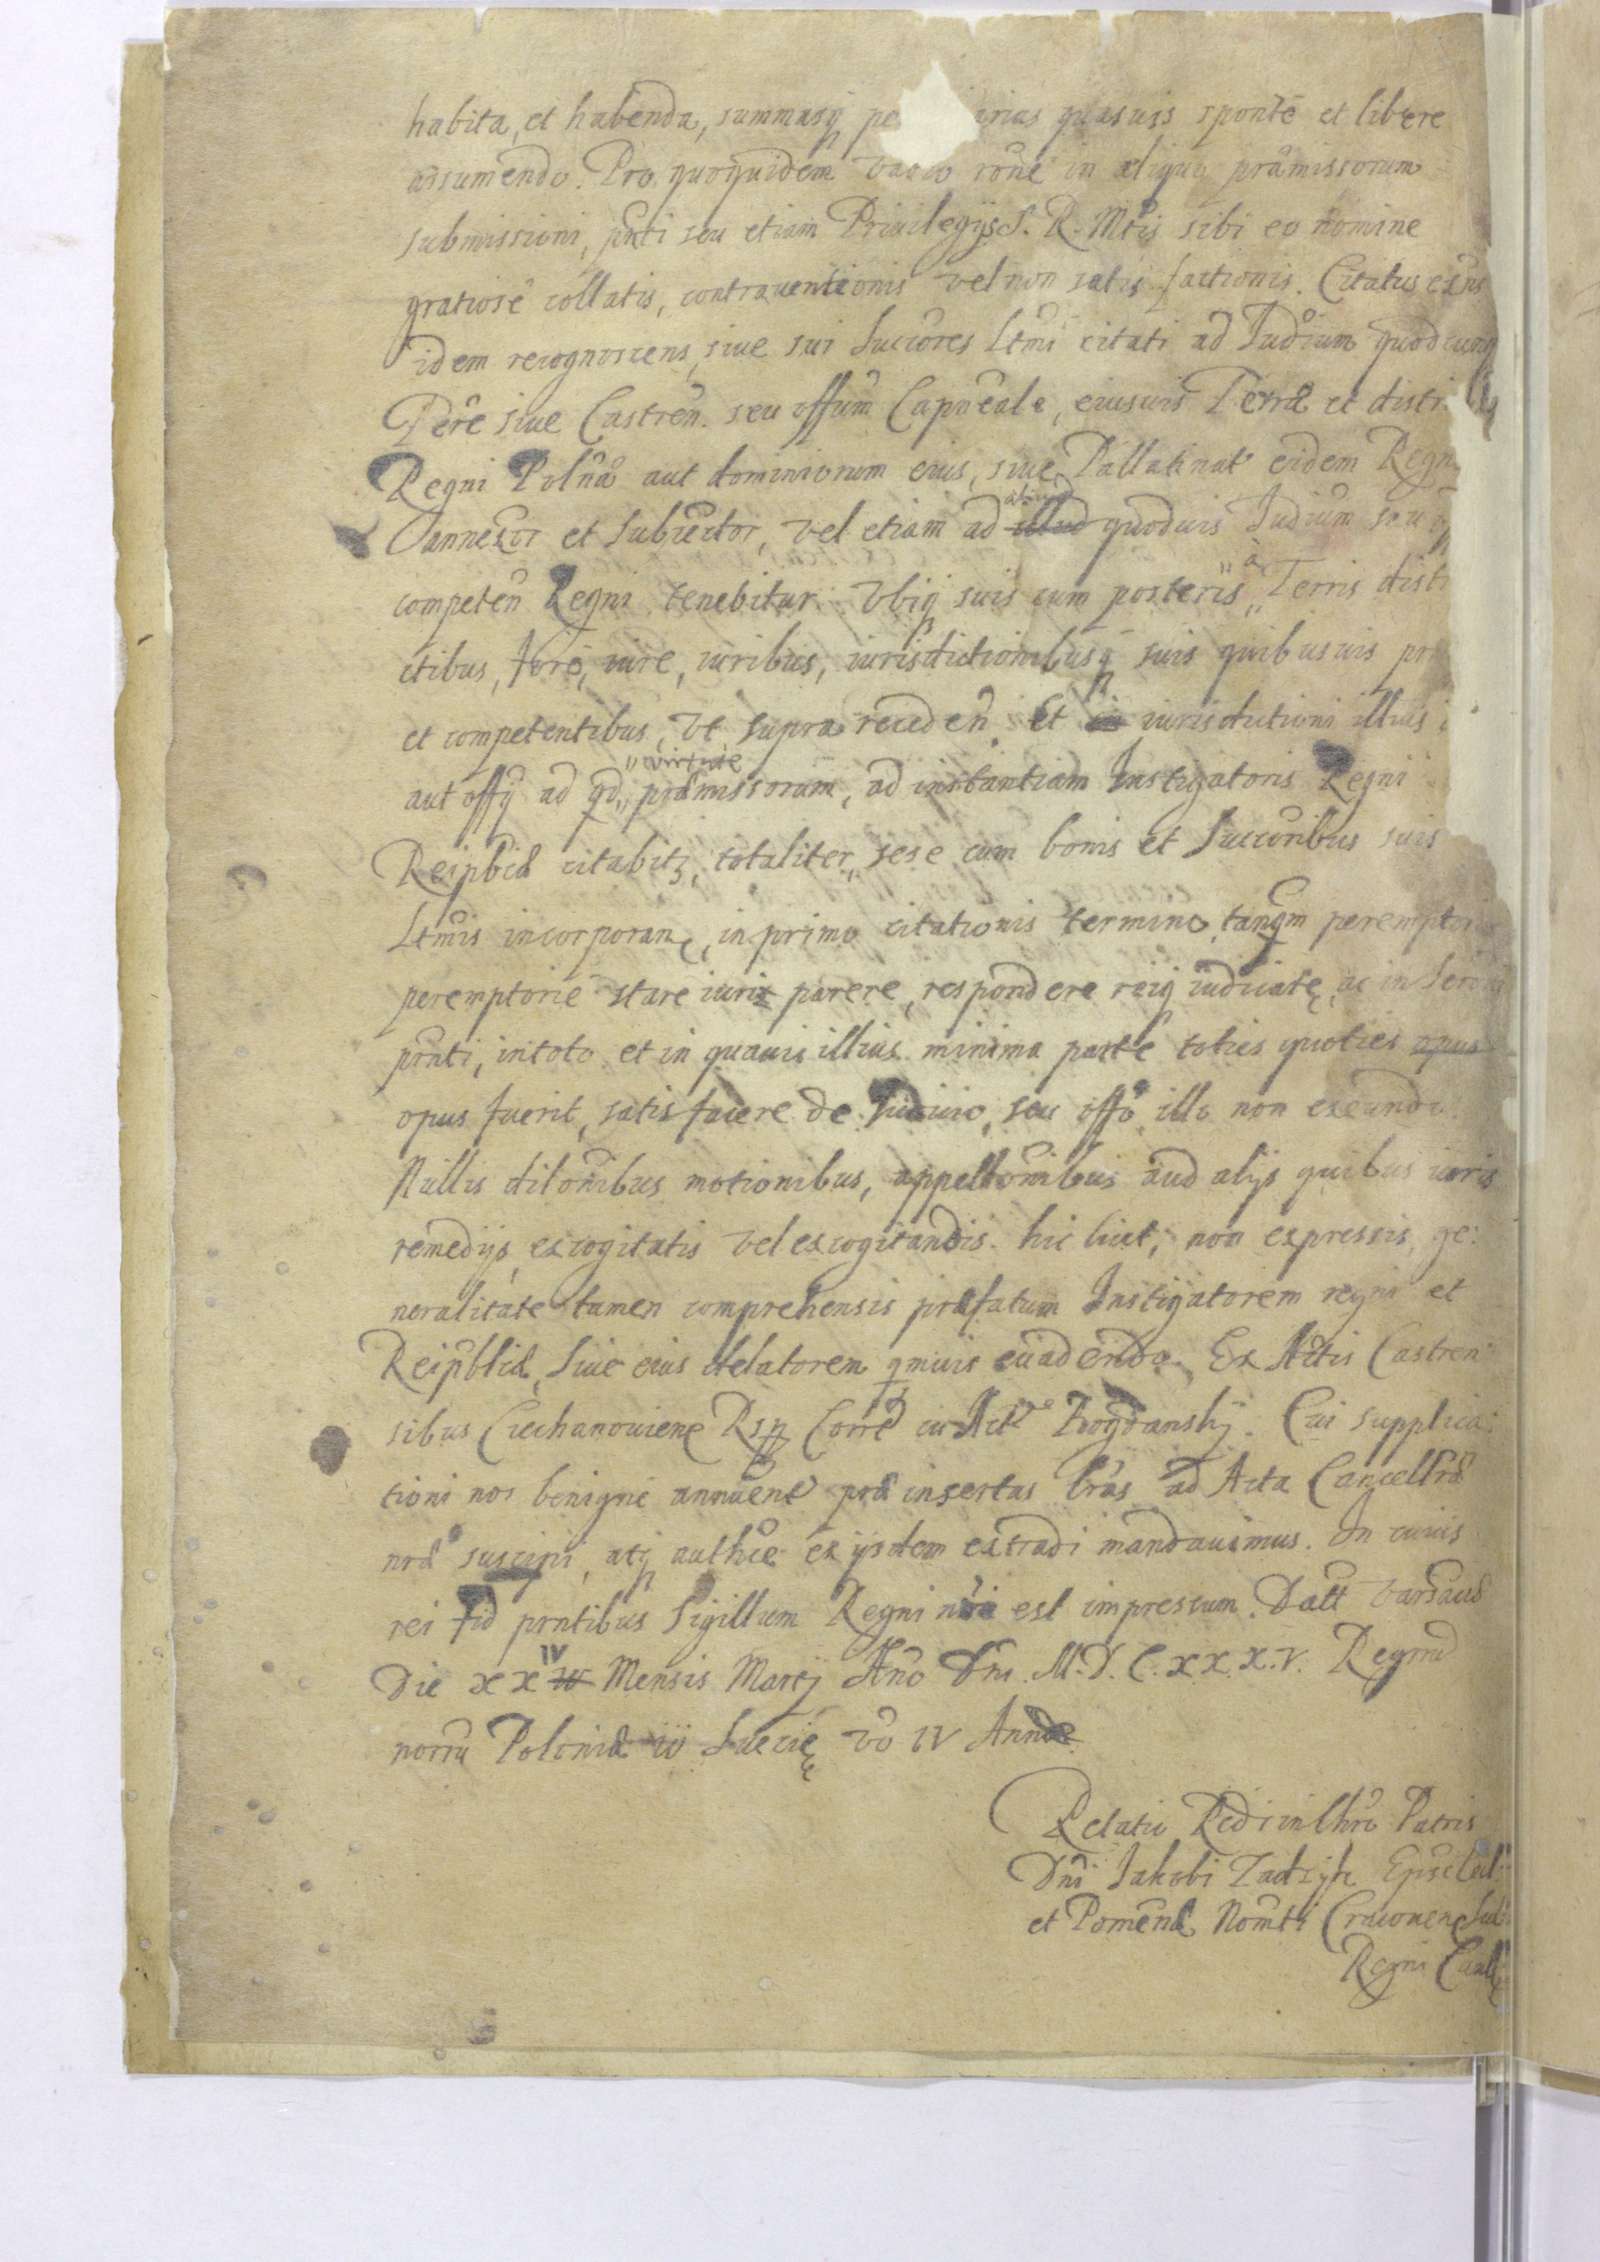 habita, et habenda, summasq pe arias quasuis spontè et libere
assumendo. Pro quoquidem vadio rōne in aliquo præmissorum
submissioni, pn̄ti seu etiam Priuilegijs S. R. Mtis sibi eo nomine
gratiosè collatis, contrauentionis vel non satisfactionis. Citatus
idem recognoscens, siue sui Succōres Ltmi citati ad Iudīum quodcunq
Terre siue Castren̄. seu offūm Capn̄eale, eiusuis Terræ et distri
Regni Poln̄æ aut dominiorum eius, siue Pallatinat eidem Regn
annexor et Subiector, vel etiam ad illud quoduis Iudīum seu
competen̄ Regni tenebitur. Vbiq suis cum posteris à Terris distr
ctibus, foro, iure, iuribus, iurisdictionibusq suis quibusuis pr
et competentibus, vt supra receden̄. Et in iurisdictioni illius
aut offij ad qd virtute præmissorum, ad instantiam Instigatoris Regni
Reipbcæ citabitz, totaliter, sese cum bonis et Succoribus suis
Ltmis incorporan, in primo citationis termino, tanqm peremptorio
peremptoriè stare iuri parere, respondere reiq iudicatę, ac in
pn̄ti, in toto et in quauis illius minima parte toties quoties opus
opus fuerit, satisfacere de Iudicio, seu offō illo non exeundo.
Nullis dilonibus motionibus, appellonibus aud alijs quibus iuris
remedijs, excogitatis vel excogitandis. hic licet, non expressis, ge:
neralitate tamen comprehensis præfatum Instigatorem regni et
Reipblicæ, Siue eius delatorem qmuis euadendo. Ex Actis Castren
sibus Ciechanouiene Rsp Corre Zrogdanskÿ. Cui supplica:
tioni nos benignè annuen̄t præinsertas lr̄as ad Acta Cancellræ
nræ suscipi, atq authce ex ijsdem extradi mandauimus. In cuius
rei fid pn̄tibus Sigillum Regni nri est impressum. Datt Varsauiæ
Die XX IV Mensis Martij Ano Dni. M.D.C.XX.X.V. Regrū
norrū Poloniæ Suecię vō IV Anno
Relatio Rediinchrō Patris
Dni Jakobi Zadzÿk Episc
et Pomen̄æ Nomti Cracouien
Regni Canll